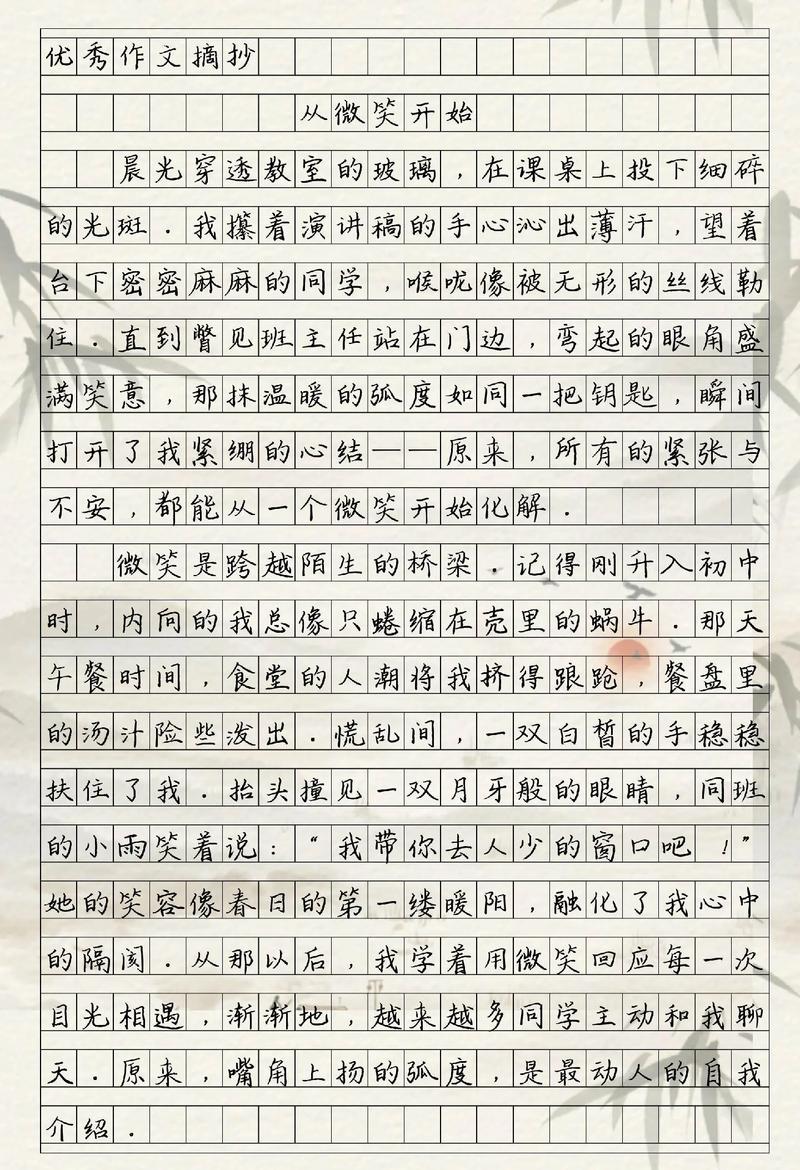 优秀作文摘抄
从微笑开始
晨光穿透教室的玻璃，在课桌上投下细碎
的光斑．我攥着演讲稿的手心沁出薄汗，望着
台下密密麻麻的同学，喉咙像被无形的丝线勒
住．直到瞥见班主任站在门边，弯起的眼角盛
满笑意，那抹温暖的弧度如同一把钥匙，瞬间
打开了我紧绷的心结——原来，所有的紧张与
不安，都能从一个微笑开始化解．
微笑是跨越陌生的桥梁．记得刚升入初中
时，内向的我总像只蜷缩在壳里的蜗牛．那天
午餐时间，食堂的人潮将我挤得踉跄，餐盘里
的汤汁险些泼出．慌乱间，一双白皙的手稳稳
扶住了我．抬头撞见一双月牙般的眼睛，同班
的小雨笑着说：“我带你去人少的窗口吧！”
她的笑容像春日的第一缕暖阳，融化了我心中
的隔阂．从那以后，我学着用微笑回应每一次
目光相遇，渐渐地，越来越多同学主动和我聊
天．原来，嘴角上扬的弧度，是最动人的自我
介绍．